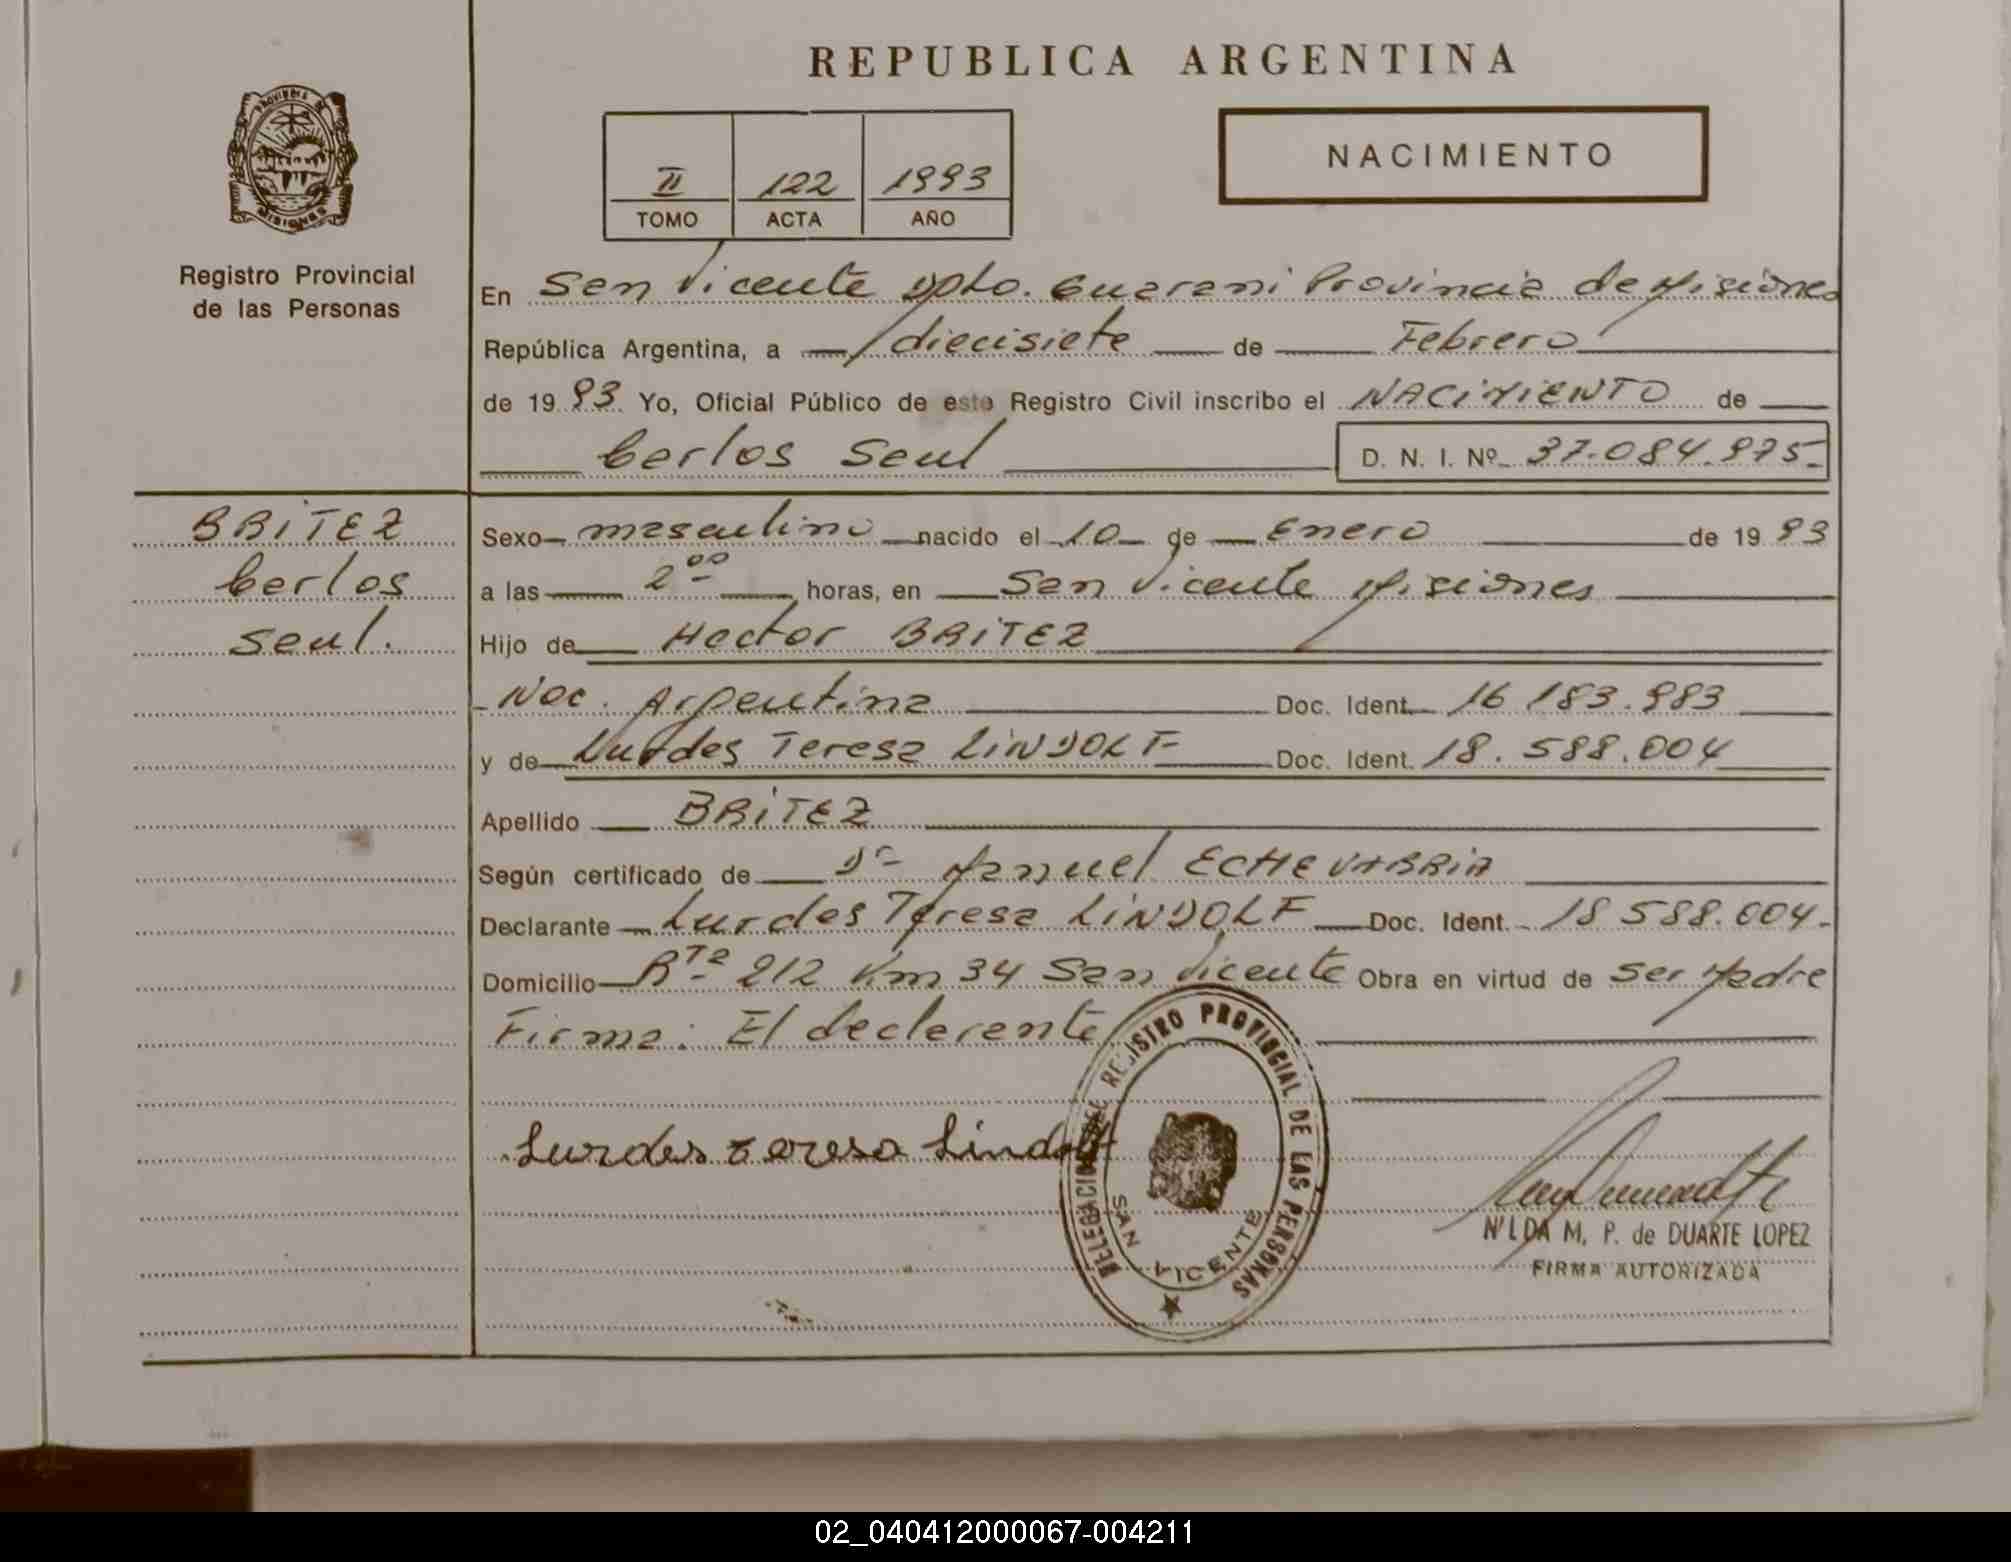 REPUBLICA ARGENTINA
PROVINCIA DE
MISIONES
Registro Provincial
de las Personas
II 122 1993
TOMO ACTA AÑO
NACIMIENTO
En San Vicente Dpto. Guarani Provincia de Misiones
República Argentina, a diecisiete de Febrero
de 1993 Yo, Oficial Público de este Registro Civil inscribo el NACIMIENTO de
Carlos Saul D. N. I. Nº 37.084.975
BRITEZ
Carlos
Saul.
Sexo masculino nacido el 10 de Enero de 1993
a las 2⁰⁰ horas, en San Vicente Misiones
Hijo de Hector BRITEZ
Nac. Argentina Doc. Ident. 16 183.983
y de Lurdes Teresa LINDOLF Doc. Ident. 18.588.004
Apellido BRITEZ
Según certificado de Dr Manuel ECHEVARRIA
Declarante Lurdes Teresa LINDOLF Doc. Ident. 18 588.004
Domicilio Rta 212 Km 34 San Vicente Obra en virtud de ser Madre
Firma: El declarante
Lurdes teresa Lindolf
DELEGACION DEL REGISTRO PROVINCIAL DE LAS PERSONAS
SAN VICENTE
NILDA M. P. de DUARTE LOPEZ
FIRMA AUTORIZADA
02_040412000067-004211